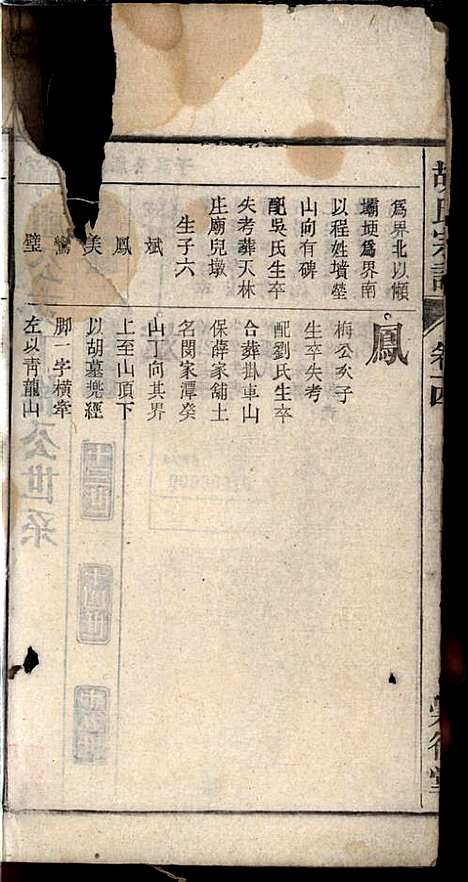 胡氏宗譜
卷四
堂
爲界北以懶
壩埂爲界南
以程姓墳塋
山向有碑
配吳氏生卒
失考葬天林
庄廟兒墩
生子六
斌
鳳
美
鸞
璧
鳳
梅公次子
生卒失考
配劉氏生卒
合葬掛車山
保薛家舖土
名閔家潭癸
山丁向其界
上至山頂下
以胡墓經
脚一字橫牽
左以青龍山